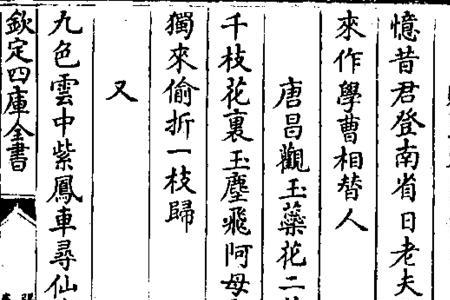 憶昔君登南省日老夫
來作學曹相替人
唐昌觀玉蘂花二
千枝花裏玉塵飛阿母
獨來偷折一枝歸
又
九色雲中紫鳳車尋仙
欽定四庫全書